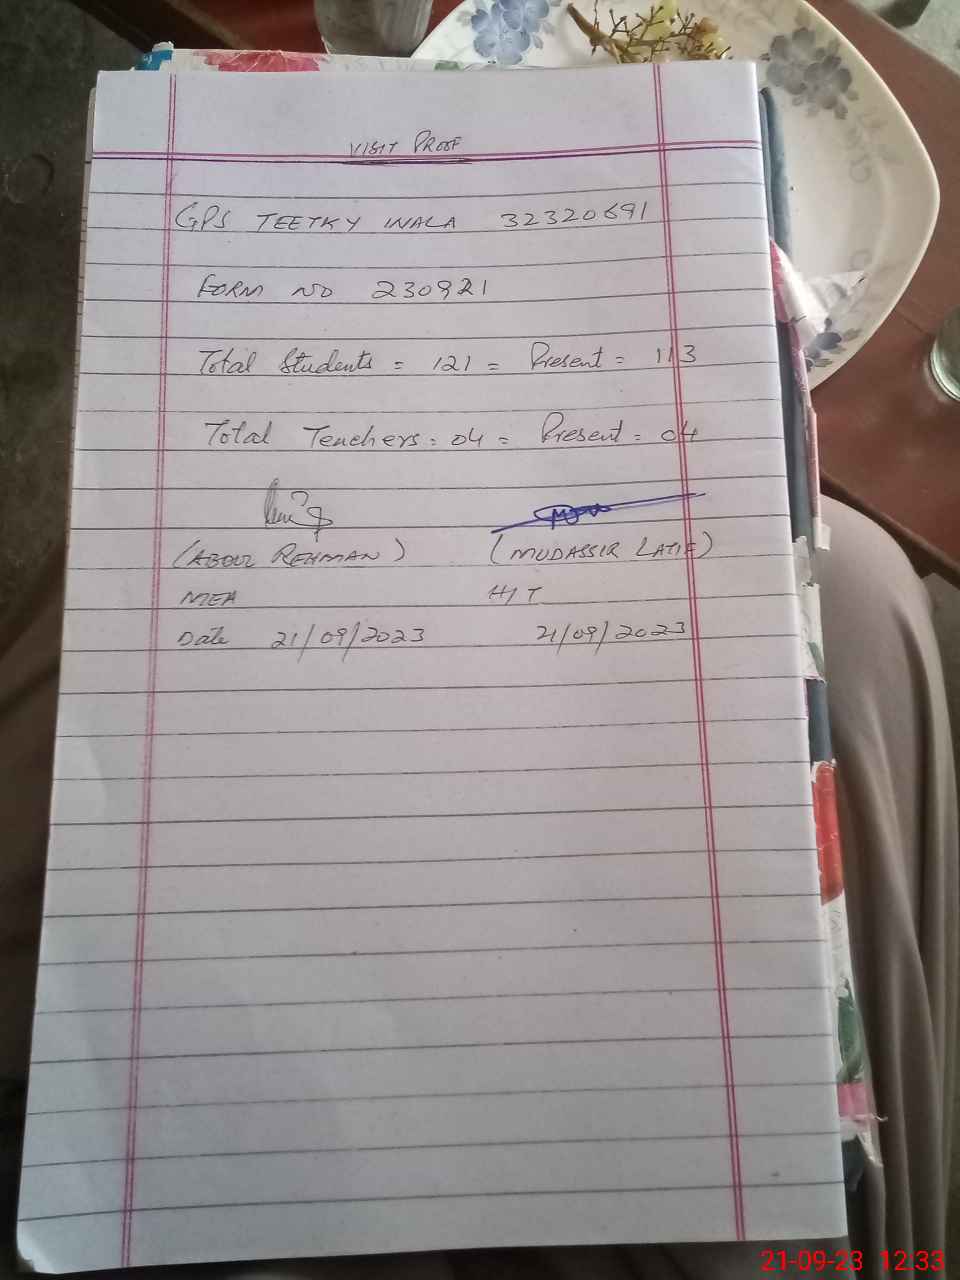 VISIT PROOF
GPS TEETKY WALA 32320691
FORM NO 230921
Total Students = 121 = Present = 113
Total Teachers = 04 = Present = 04
(ABDUL REHMAN) (MUDASSIR LATIF)
MEA H/T
Date 21/09/2023 21/09/2023
21-09-23 12:33